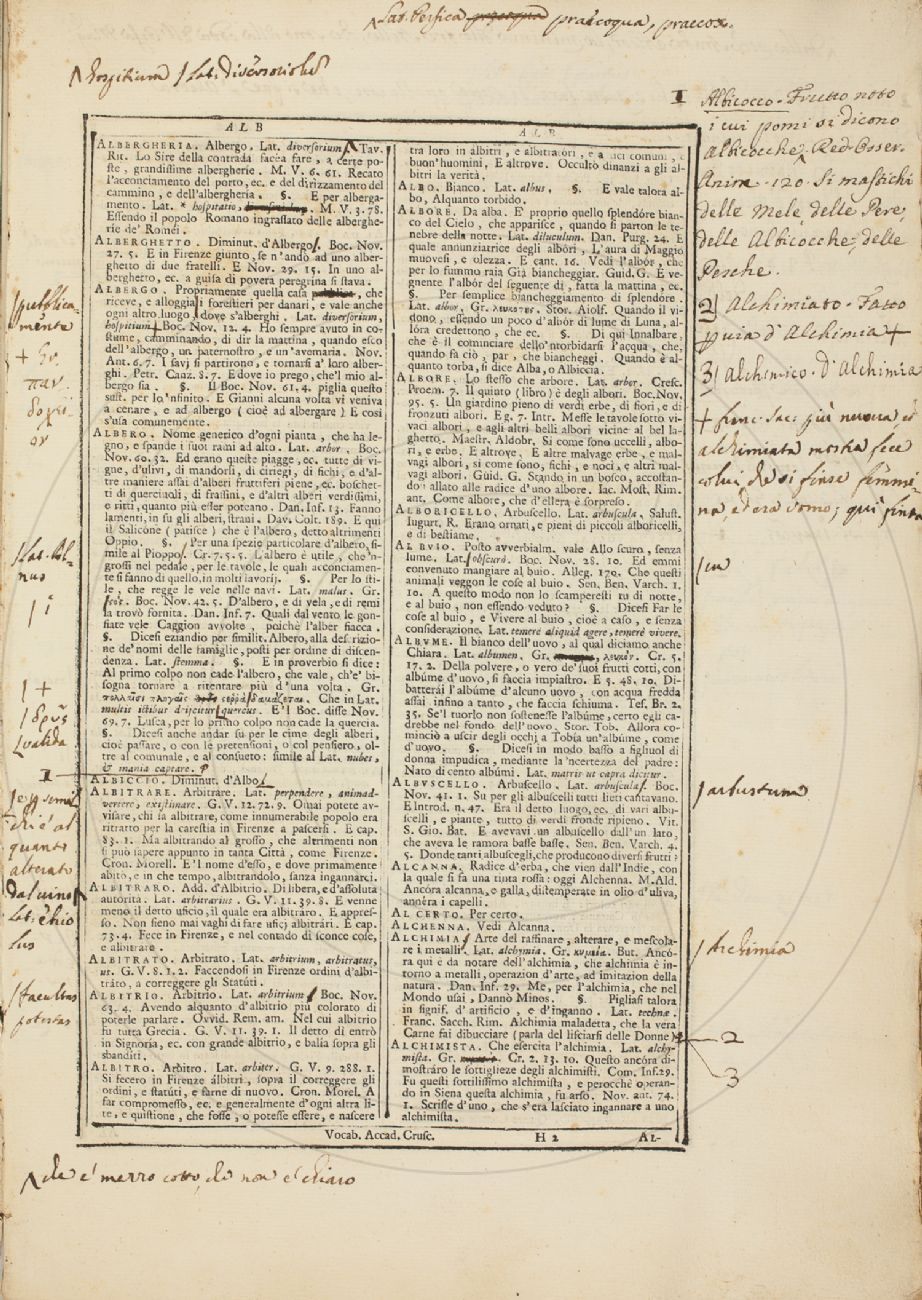 Lat. Persica praecoqua, praecox.
hospitium
1
Albicocco. Frutto noto
i cui pomi si dicono
albicocche. Red. Osser.
Anim. 120. Si mastichi
delle Mele, delle Pere,
delle Albicocche, delle
Pesche.
2 Alchimiato. Fatto
per via d'Alchimia +
3 Alchimico. d'Alchimia
+ Franc. Sac. più nuova è
alchimiata mostra fece
colui che si finse femmi-
na, ed era uomo; qui finta
ALB
ALBERGHERIA. Albergo. Lat. diversorium Tav.
Rit. Lo Sire della contrada facéa fare, a certe po-
ste, grandissime albergherie. M. V. 6. 61. Recato
l'acconciamento del porto, ec. e del dirizzamento del
cammino, e dell'albergheria. §. E per alberga-
mento. Lat. * hospitatio, M. V. 3. 78.
Essendo il popolo Romano ingrassato delle alberghe-
rie de' Roméi.
ALBERGHETTO. Diminut. d'Albergo. Boc. Nov.
27. 5. E in Firenze giunto, se n'andò ad uno alber-
ghetto di due fratelli. E Nov. 29. 15. In uno al-
berghetto, ec. a guisa di povera peregrina si stava.
ALBERGO. Propriamente quella casa che
riceve, e alloggia i forestieri per danari, e vale anche
ogni altro luogo, dove s'alberghi. Lat. diversorium,
hospitium + Boc. Nov. 12. 4. Ho sempre avuto in co-
stume, camminando, di dir la mattina, quando esco
dell'albergo, un paternostro, e un'avemaria. Nov.
Ant. 6. 7. I savj si partirono, e tornarsi a' loro alber-
ghi. Petr. Canz. 8. 7. E dove io prego, che'l mio al-
bergo sia. §. Il Boc. Nov. 61. 4. piglia questo
sust. per lo'nfinito. E Gianni alcuna volta vi veniva
a cenare, e ad albergo (cioè ad albergare) E così
s'usa comunemente.
ALBERO. Nome generico d'ogni pianta, che ha le-
gno, e spande i suoi rami ad alto. Lat. arbor, Boc.
Nov. 60. 32. Ed erano queste piagge, ec. tutte di vi-
gne, d'ulivi, di mandorli, di ciriegi, di fichi, e d'al-
tre maniere assai d'alberi fruttiferi piene, ec. boschet-
ti di querciuoli, di frassini, e d'altri alberi verdissimi,
e ritti, quanto più esser poteano. Dan. Inf. 13. Fanno
lamenti, in su gli alberi, strani. Dav. Colt. 189. E qui
il Salicone (patisce) che è l'albero, detto altrimenti
Oppio. §. Per una spezie particolare d'albero, si-
mile al Pioppo. Cr. 7. 5. 5. L'albero è utile, che'n-
grossi nel pedale, per le tavole, le quali acconciamen-
te si fanno di quello, in molti lavorij. §. Per lo sti-
le, che regge le vele nelle navi. Lat. malus. Gr.
Boc. Nov. 42. 5. D'albero, e di vela, e di remi
la trovò fornita. Dan. Inf. 7. Quali dal vento le gon-
fiate vele Caggion avvolte, poichè l'alber fiacca.
§. Dicesi eziandio per similit. Albero, alla descrizio-
ne de' nomi delle famiglie, posti per ordine di discen-
denza. Lat. stemma. §. E in proverbio si dice:
Al primo colpo non cade l'albero, che vale, ch'e' bi-
sogna tornare a ritentare più d'una volta. Gr.
Che in Lat.
multis ictibus dejicitur quercus. E'l Boc. disse Nov.
69. 7. Lusca, per lo primo colpo non cade la quercia.
§. Dicesi anche andar su per le cime degli alberi,
cioè passare, o con le pretensioni, o col pensiero, ol-
tre al comunale, e al consueto: simile al Lat. nubes,
& inania captare.
ALBICCIO. Diminut. d'Albo
ALBITRARE. Arbitrare. Lat. perpendere, animad-
vertere, existimare. G. V. 12. 72. 9. Omai potete av-
visare, chi sa albitrare, come innumerabile popolo era
ritratto per la carestia in Firenze a pascersi. E cap.
83. 1. Ma albitrando al grosso, che altrimenti non
si può sapere appunto in tanta Città, come Firenze.
Cron. Morell. E'l nome d'esso, e dove primamente
abitò, e in che tempo, albitrandolo, sanza ingannarci.
ALBITRARO. Add. d'Albitrio. Di libera, e d'assoluta
autorità. Lat. arbitrarius. G. V. 11. 39. 8. E venne
meno il detto uficio, il quale era albitráro. E appres-
so. Non sieno mai vaghi di fare uficj albitrári. E cap.
73. 4. Fece in Firenze, e nel contado di sconce cose,
e albitrarie.
ALBITRATO. Arbitrato. Lat. arbitrium, arbitratus,
us. G. V. 8. 1. 2. Faccendosi in Firenze ordini d'albi-
trato, a correggere gli Statúti.
ALBITRIO. Arbitrio. Lat. arbitrium Boc. Nov.
63. 4. Avendo alquanto d'albitrio più colorato di
poterle parlare. Ovvid. Rem. am. Nel cui albitrio
fu tutta Grecia. G. V. 11. 39. 1. Il detto dì entrò
in Signoria, ec. con grande albitrio, e balía sopra gli
sbanditi.
ALBITRO. Arbitro. Lat. arbiter. G. V. 9. 288. 1.
Si fecero in Firenze álbitri, sopra il correggere gli
ordini, e statúti, e farne di nuovo. Cron. Morel. A
far compromesso, ec. e generalmente d'ogni altra li-
te, e quistione, che fosse, o potesse essere, e nascere
ALB
tra loro in albitri, e albitratóri, e amici comuni, e
buon'huomini, E altrove. Occultò dinanzi a gli al-
bitri la verità.
ALBO. Bianco. Lat. albus. §. E vale talora al-
bo, Alquanto torbido.
ALBORE. Da alba. E' proprio quello splendóre bian-
co del Cielo, che apparisce, quando si parton le te-
nebre della notte. Lat. diluculum. Dan. Purg. 24. E
quale annunziatrice degli albóri, L'aura di Maggio
muovesi, e olezza. E cant. 16. Vedi l'albór, che
per lo fummo raia Già biancheggiar. Guid. G. E ve-
gnente l'albór del seguente dì, fatta la mattina, ec.
§. Per semplice biancheggiamento di splendóre.
Lat. albor, Gr. λευκότης. Stor. Aiolf. Quando il vi-
dono, essendo un poco d'albór di lume di Luna, al-
lóra credettono, che ec. §. Di qui Innalbare,
che è il cominciare dello'ntorbidarsi l'acqua, che,
quando fa ciò, par, che biancheggi. Quando è al-
quanto torba, si dice Alba, o Albiccia.
ALBORE. Lo stesso che arbore. Lat. arbor. Cresc.
Proem. 7. Il quinto (libro) è degli albori. Boc. Nov.
95. 5. Un giardino pieno di verdi erbe, di fiori, e di
fronzuti albori. Eg. 7. Intr. Messe le tavole sotto vi-
vaci albori, e agli altri belli albori vicine al bel la-
ghetto. Maestr. Aldobr. Si come sono uccelli, albo-
ri, e erbe. E altrove. E altre malvage erbe, e mal-
vagi albori, si come sono, fichi, e noci, e altri mal-
vagi albori. Guid. G. Stando in un bosco, accostan-
do: allato alle radice d'uno albore. Iac. Most. Rim.
ant. Come albore, che d'ellera è sorpreso.
ALBORICELLO, Arbuscello. Lat. arbuscula, Salust.
Iugurt. R. Erano ornati, e pieni di piccoli alboricelli,
e di bestiame.
AL BUIO. Posto avverbialm. vale Allo scuro, senza
lume. Lat. obscurè. Boc. Nov. 28. 10. Ed emmi
convenuto mangiare al buio. Alleg. 170. Che questi
animali veggon le cose al buio. Sen. Ben. Varch. 1.
10. A questo modo non lo scamperesti tu di notte,
e al buio, non essendo veduto? §. Dicesi Far le
cose al buio, e Vivere al buio, cioè a caso, e senza
considerazione. Lat. temerè aliquid agere, temerè vivere.
ALBUME. Il bianco dell'uovo, al qual diciamo anche
Chiara. Lat. albumen. Gr. Cr. 5.
17. 2. Della polvere, o vero de' suoi frutti cotti, con
albúme d'uovo, si faccia impiastro. E 5. 48. 10. Di-
batterái l'albúme d'alcuno uovo, con acqua fredda
assai infino a tanto, che faccia schiuma. Tes. Br. 2.
35. Se'l tuorlo non sostenesse l'albúme, certo egli ca-
drebbe nel fondo dell'uovo. Stor. Tob. Allora co-
minciò a uscir degli occhj a Tobía un'albúme, come
d'uovo. §. Dicesi in modo basso a figliuol di
donna impudica, mediante la 'ncertezza del padre:
Nato di cento albúmi. Lat. matris ut capra dicitur.
ALBUSCELLO. Arbuscello. Lat. arbuscula Boc.
Nov. 41. 1. Su per gli albuscelli tutti lieti cantavano.
E Introd. n. 47. Era il detto luogo, ec. di vari albu-
scelli, e piante, tutto di verdi fronde ripieno. Vit.
S. Gio. Bat. E avevavi un albuscello dall'un lato,
che aveva le ramora basse basse. Sen. Ben. Varch. 4.
5. Donde tanti albuscegli, che producono diversi frutti?
ALCANNA. Radice d'erba, che vien dall'Indie, con
la quale si fa una tinta rossa: oggi Alchenna. M. Ald.
Ancóra alcanna, e galla, distemperate in olio d'uliva,
annéra i capelli.
AL CERTO. Per certo.
ALCHENNA. Vedi Alcanna.
ALCHIMIA Arte del raffinare, alterare, e mescola-
re i metalli. Lat. alchymia. Gr. But. Ancó-
ra qui è da notare dell'alchimia, che alchimia è in-
torno a metalli, operazion d'arte, ad imitazion della
natura. Dan. Inf. 29. Me, per l'alchimia, che nel
Mondo usai, Dannò Minos. §. Pigliasi talora
in signif. d'artificio, e d'inganno. Lat. technæ.
Franc. Sacch. Rim. Alchimia maladetta, che la vera
Carne fai dibucciare (parla del lisciarsi delle Donne)
ALCHIMISTA. Che esercita l'alchimia. Lat. alchy-
mista. Gr. Cr. 2. 13. 10. Questo ancóra di-
mostráro le sottigliezze degli alchimisti. Com. Inf. 29.
Fu questi sottilissimo alchimista, e perocchè operan-
do in Siena questa alchimia, fu arso. Nov. ant. 74.
1. Scrisse d'uno, che s'era lasciato ingannare a uno
alchimista.
Vocab. Accad. Crusc. H 2 AL-
pubblica-
mente
+ Gr.
παν-
δοχεῖ-
ον
Lat. Al-
nus
i
+
δρῦς
valida
1
quanto
alterato
dal vino
Lat. ebrio-
lus
facultas
potestas
in
arbustum
Alchimia
2
3
che è mezzo cotto, che non è chiaro